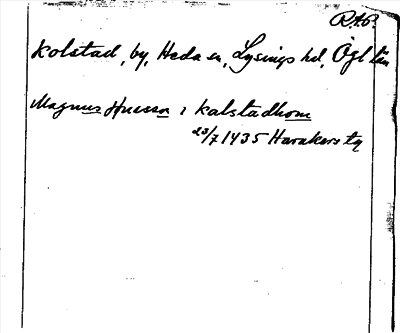 RAP.
Kolstad, by, Heda sn, Lysings hd, Ögl län
Magnus i kalstadhom
23/7 1435 Harakers tg